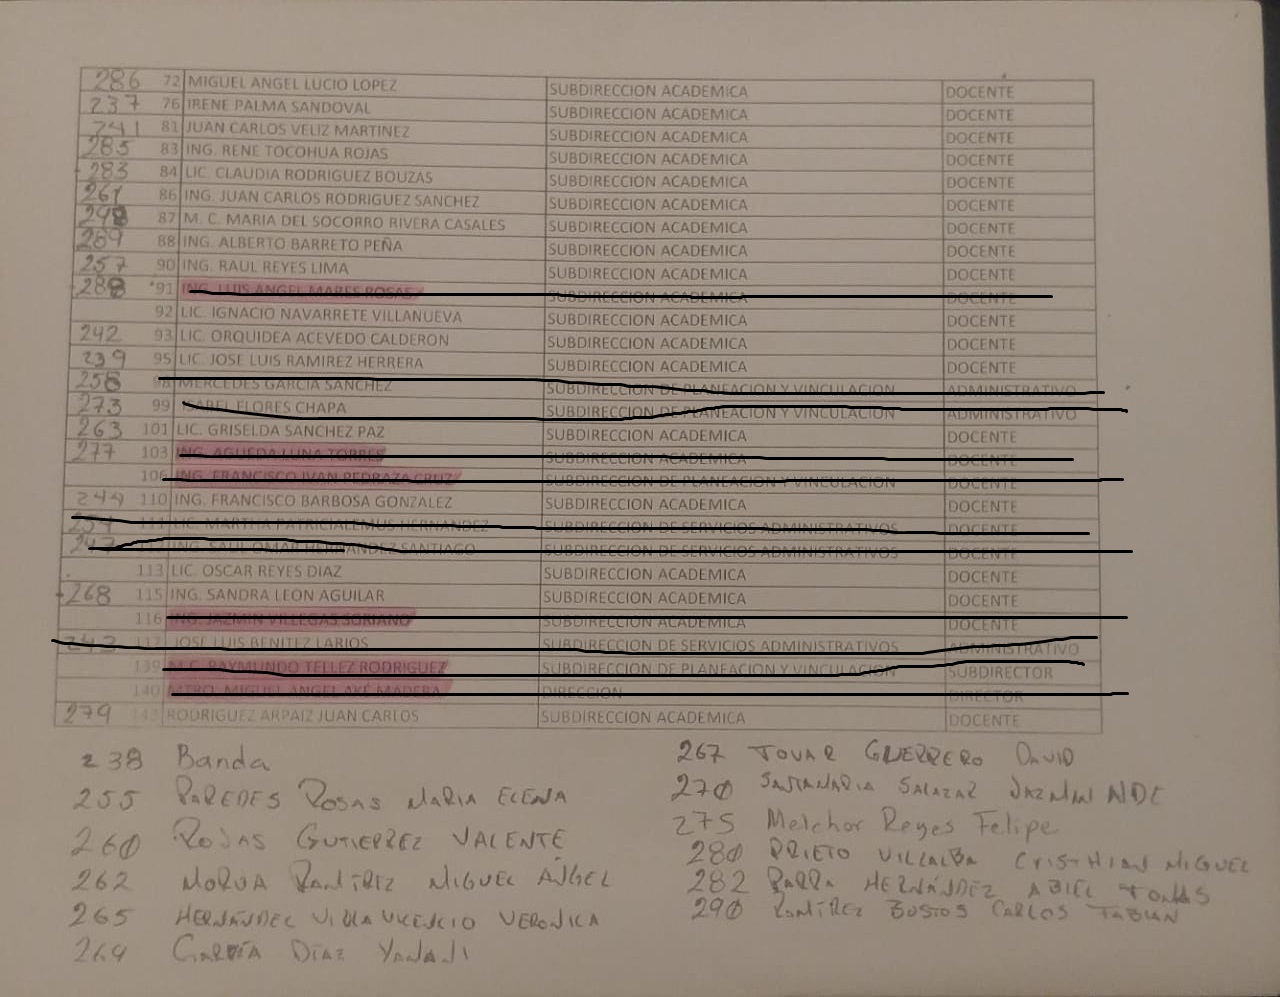 286 72 MIGUEL ANGEL LUCIO LOPEZ SUBDIRECCION ACADEMICA DOCENTE
237 76 IRENE PALMA SANDOVAL SUBDIRECCION ACADEMICA DOCENTE
241 81 JUAN CARLOS VELIZ MARTINEZ SUBDIRECCION ACADEMICA DOCENTE
285 83 ING. RENE TOCOHUA ROJAS SUBDIRECCION ACADEMICA DOCENTE
283 84 LIC. CLAUDIA RODRIGUEZ BOUZAS SUBDIRECCION ACADEMICA DOCENTE
261 86 ING. JUAN CARLOS RODRIGUEZ SANCHEZ SUBDIRECCION ACADEMICA DOCENTE
87 M. C. MARIA DEL SOCORRO RIVERA CASALES SUBDIRECCION ACADEMICA DOCENTE
289 88 ING. ALBERTO BARRETO PEÑA SUBDIRECCION ACADEMICA DOCENTE
257 90 ING. RAUL REYES LIMA SUBDIRECCION ACADEMICA DOCENTE
288 91 ING. LUIS ANGEL MARES ROSAS SUBDIRECCION ACADEMICA DOCENTE
92 LIC. IGNACIO NAVARRETE VILLANUEVA SUBDIRECCION ACADEMICA DOCENTE
242 93 LIC. ORQUIDEA ACEVEDO CALDERON SUBDIRECCION ACADEMICA DOCENTE
239 95 LIC. JOSE LUIS RAMIREZ HERRERA SUBDIRECCION ACADEMICA DOCENTE
258 98 MERCEDES GARCIA SANCHEZ SUBDIRECCION DE PLANEACION Y VINCULACION ADMINISTRATIVO
273 99 ISABEL FLORES CHAPA SUBDIRECCION DE PLANEACION Y VINCULACION ADMINISTRATIVO
263 101 LIC. GRISELDA SANCHEZ PAZ SUBDIRECCION ACADEMICA DOCENTE
277 103 ING. AGUEDA LUNA TORRES SUBDIRECCION ACADEMICA DOCENTE
106 ING. FRANCISCO IVAN PEDRAZA CRUZ SUBDIRECCION DE PLANEACION Y VINCULACION DOCENTE
244 110 ING. FRANCISCO BARBOSA GONZALEZ SUBDIRECCION ACADEMICA DOCENTE
254 111 LIC. MARTHA PATRICIALEMUS HERNANDEZ SUBDIRECCION DE SERVICIOS ADMINISTRATIVOS DOCENTE
247 ING. SAUL OMAR HERNANDEZ SANTIAGO SUBDIRECCION DE SERVICIOS ADMINISTRATIVOS DOCENTE
113 LIC. OSCAR REYES DIAZ SUBDIRECCION ACADEMICA DOCENTE
268 115 ING. SANDRA LEON AGUILAR SUBDIRECCION ACADEMICA DOCENTE
116 ING. JAZMIN VILLEGAS SORIANO SUBDIRECCION ACADEMICA DOCENTE
243 117 JOSE LUIS BENITEZ LARIOS SUBDIRECCION DE SERVICIOS ADMINISTRATIVOS ADMINISTRATIVO
139 M.C. RAYMUNDO TELLEZ RODRIGUEZ SUBDIRECCION DE PLANEACION Y VINCULACION SUBDIRECTOR
140 MTRO. MIGUEL ANGEL AKÉ MADERA DIRECCION DIRECTOR
279 RODRIGUEZ ARPAIZ JUAN CARLOS SUBDIRECCION ACADEMICA DOCENTE
238 Banda
255 PAREDES ROSAS MARIA ELENA
260 ROJAS GUTIERREZ VALENTE
262 MORUA RAMÍREZ MIGUEL ÁNGEL
265 HERNÁNDEZ VILLAVICENCIO VERONICA
269 GARCÍA DÍAZ YANANI
267 TOVAR GUERRERO DAVID
270 SANTAMARIA SALAZAR
275 Melchor Reyes Felipe
280 PRIETO VILLALBA CRISTHIAN MIGUEL
282 PARRA HERNÁNDEZ ABIEL TOMÁS
290 RAMÍREZ BUSTOS CARLOS FABIAN